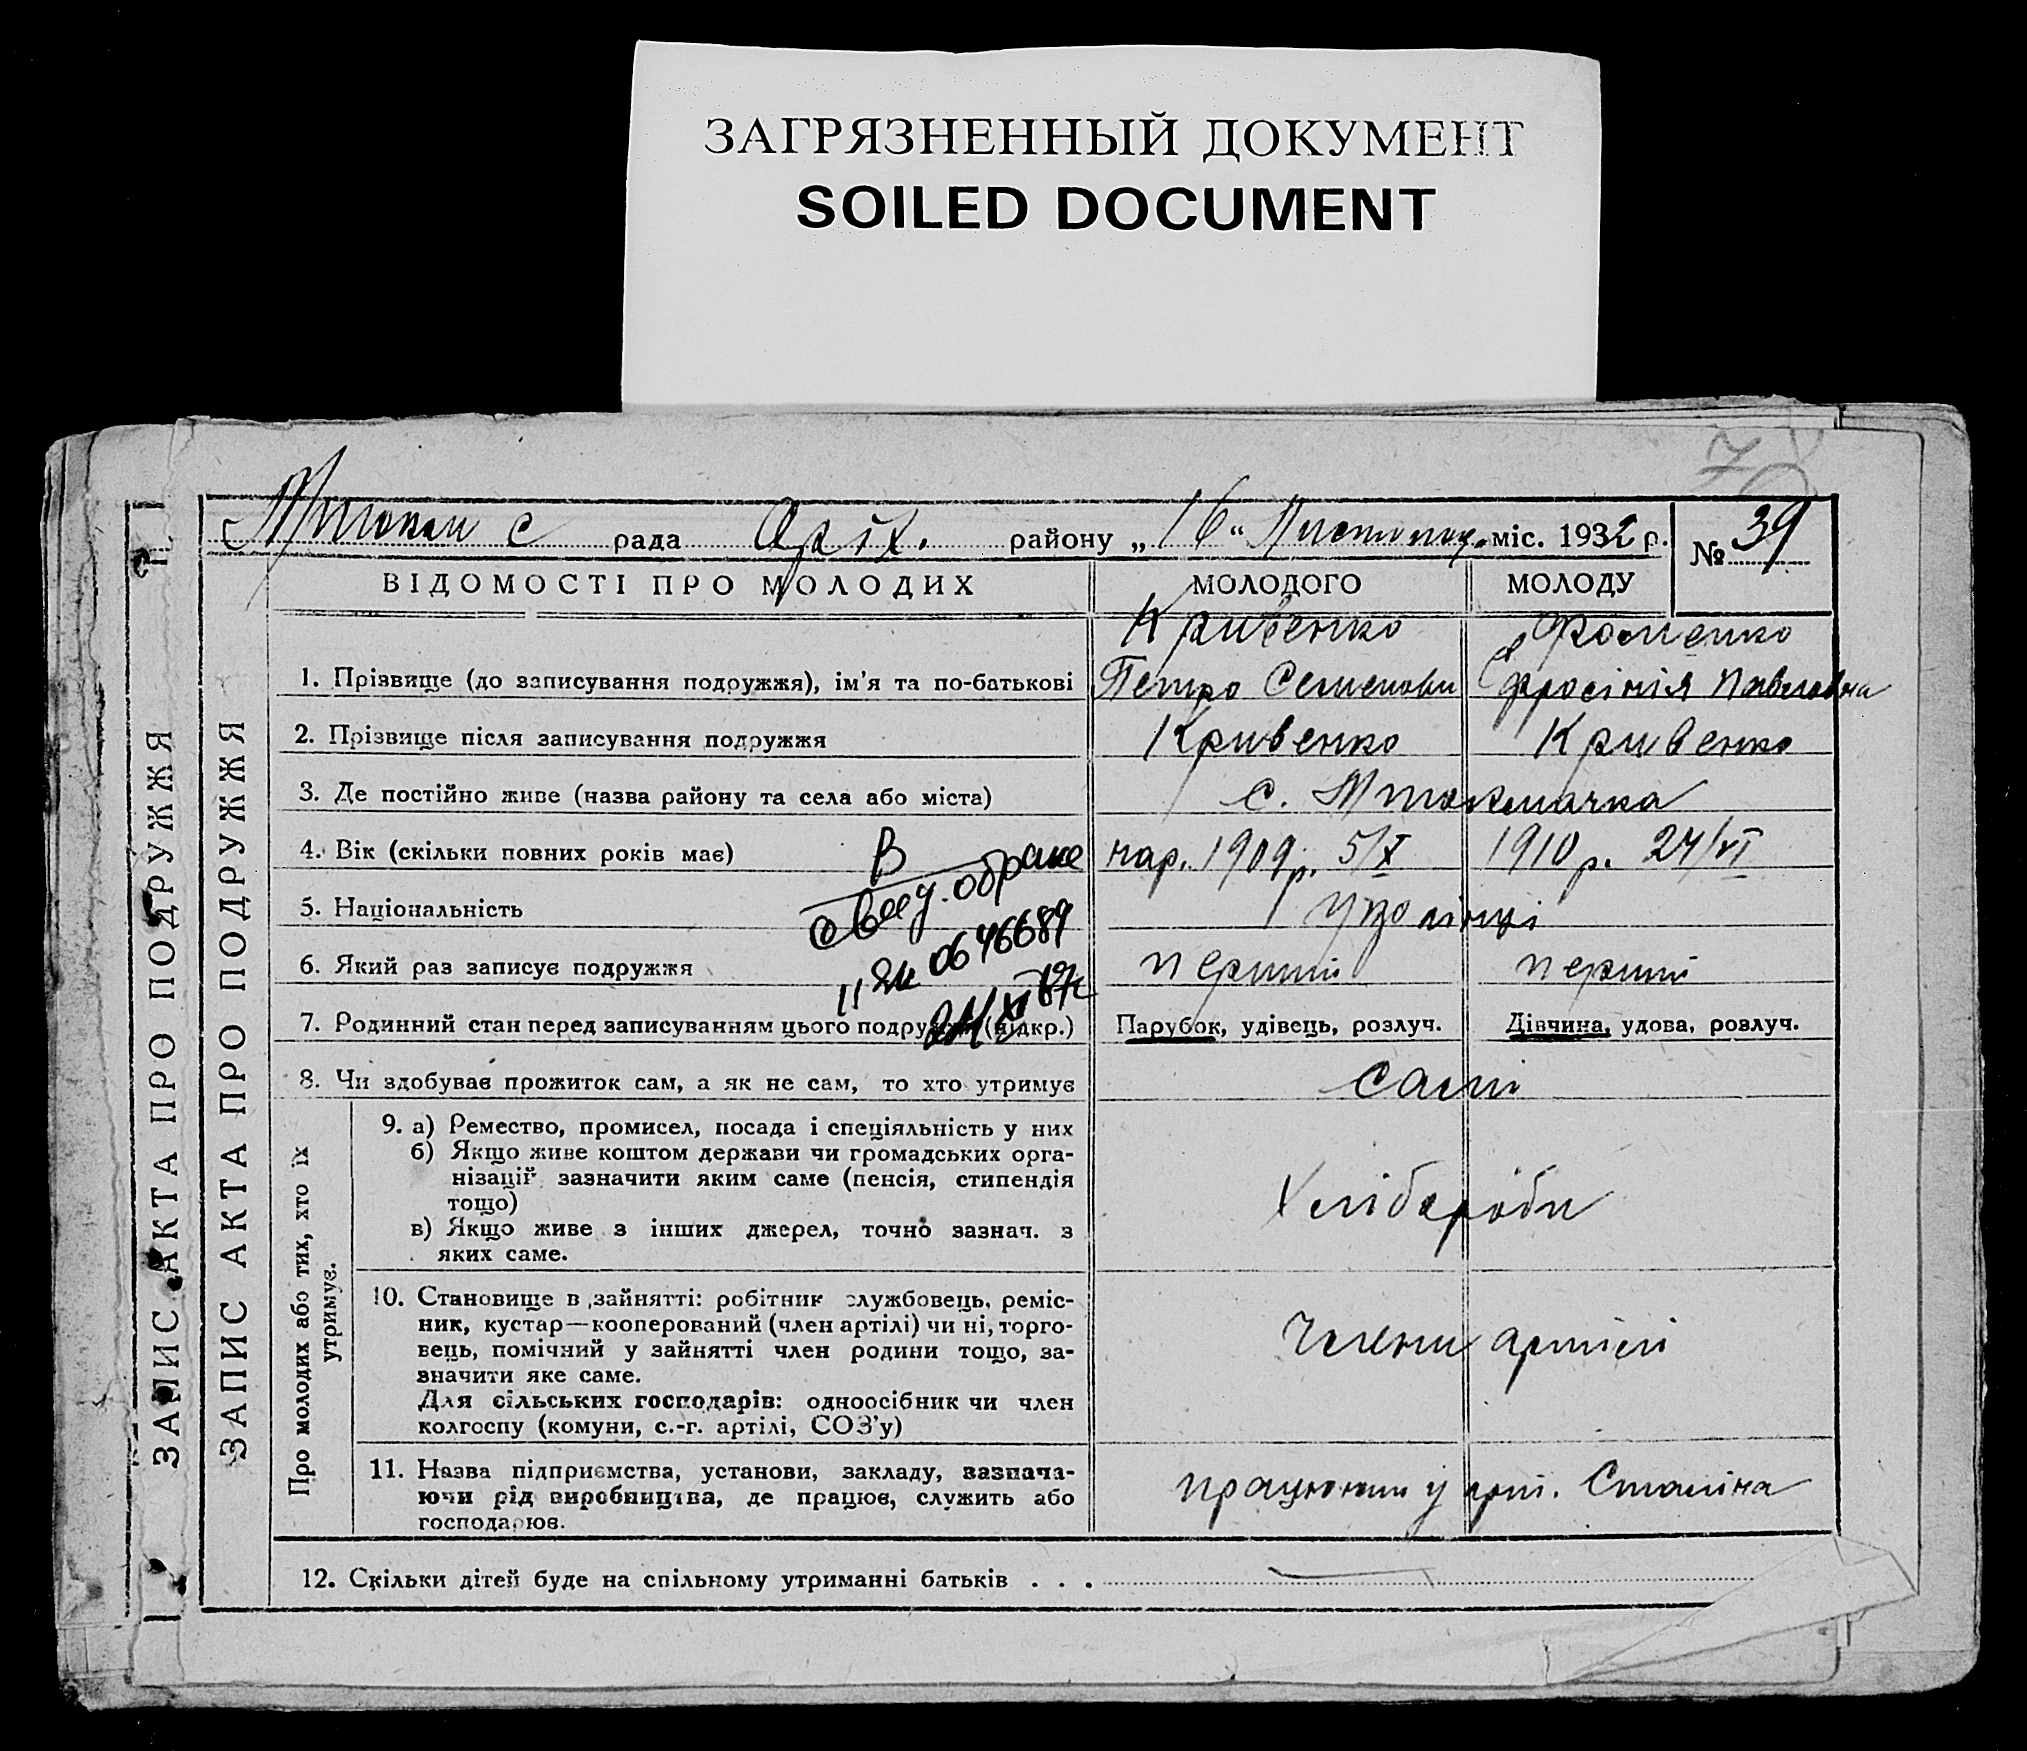 ЗАГРЯЗНЕННЫЙ ДОКУМЕНТ
SOILED DOCUMENT
с рада Оріх. району „16“ Листопад. міс. 1932 р. № 39
ВІДОМОСТІ ПРО МОЛОДИХ МОЛОДОГО МОЛОДУ
Кривенко Фоменко
1. Прізвище (до записування подружжя), ім’я та по-батькові Петро Семенови Фросінія Павловна
2. Прізвище після записування подружжя Кривенко Кривенко
3. Де постійно живе (назва району та села або міста) с. Мтокмачка
4. Вік (скільки повних років має) нар. 1909 р. 5/X 1910 р. 24/VI
В
5. Національність
свид. о браке
6. Який раз записує подружжя перший перший
11 0646689
7. Родинний стан перед записуванням цього подружжя (підкр.) Парубок, удівець, розлуч. Дівчина, удова, розлуч.
8. Чи здобуває прожиток сам, а як не сам, то хто утримує Самі
Про молодих або тих, хто їх утримує.
9. а) Ремество, промисел, посада і спеціяльність у них
б) Якщо живе коштом держави чи громадських орга-
нізацій зазначити яким саме (пенсія, стипендія
тощо)
в) Якщо живе з інших джерел, точно зазнач. з
яких саме.
Хлібароби
10. Становище в зайнятті: робітник службовець, реміс-
ник, кустар—кооперований (член артілі) чи ні, торго-
вець, помічний у зайнятті член родини тощо, за-
значити яке саме.
Для сільських господарів: одноосібник чи член
колгоспу (комуни, с.-г. артілі, СОЗ’у)
Члени артілі
11. Назва підприємства, установи, закладу, зазнача-
ючи рід виробництва, де працює, служить або
господарює.
працюють у арт. Сталіна
12. Скільки дітей буде на спільному утриманні батьків . . .
ЗАПИС АКТА ПРО ПОДРУЖЖЯ
ЗАПИС АКТА ПРО ПОДРУЖЖЯ